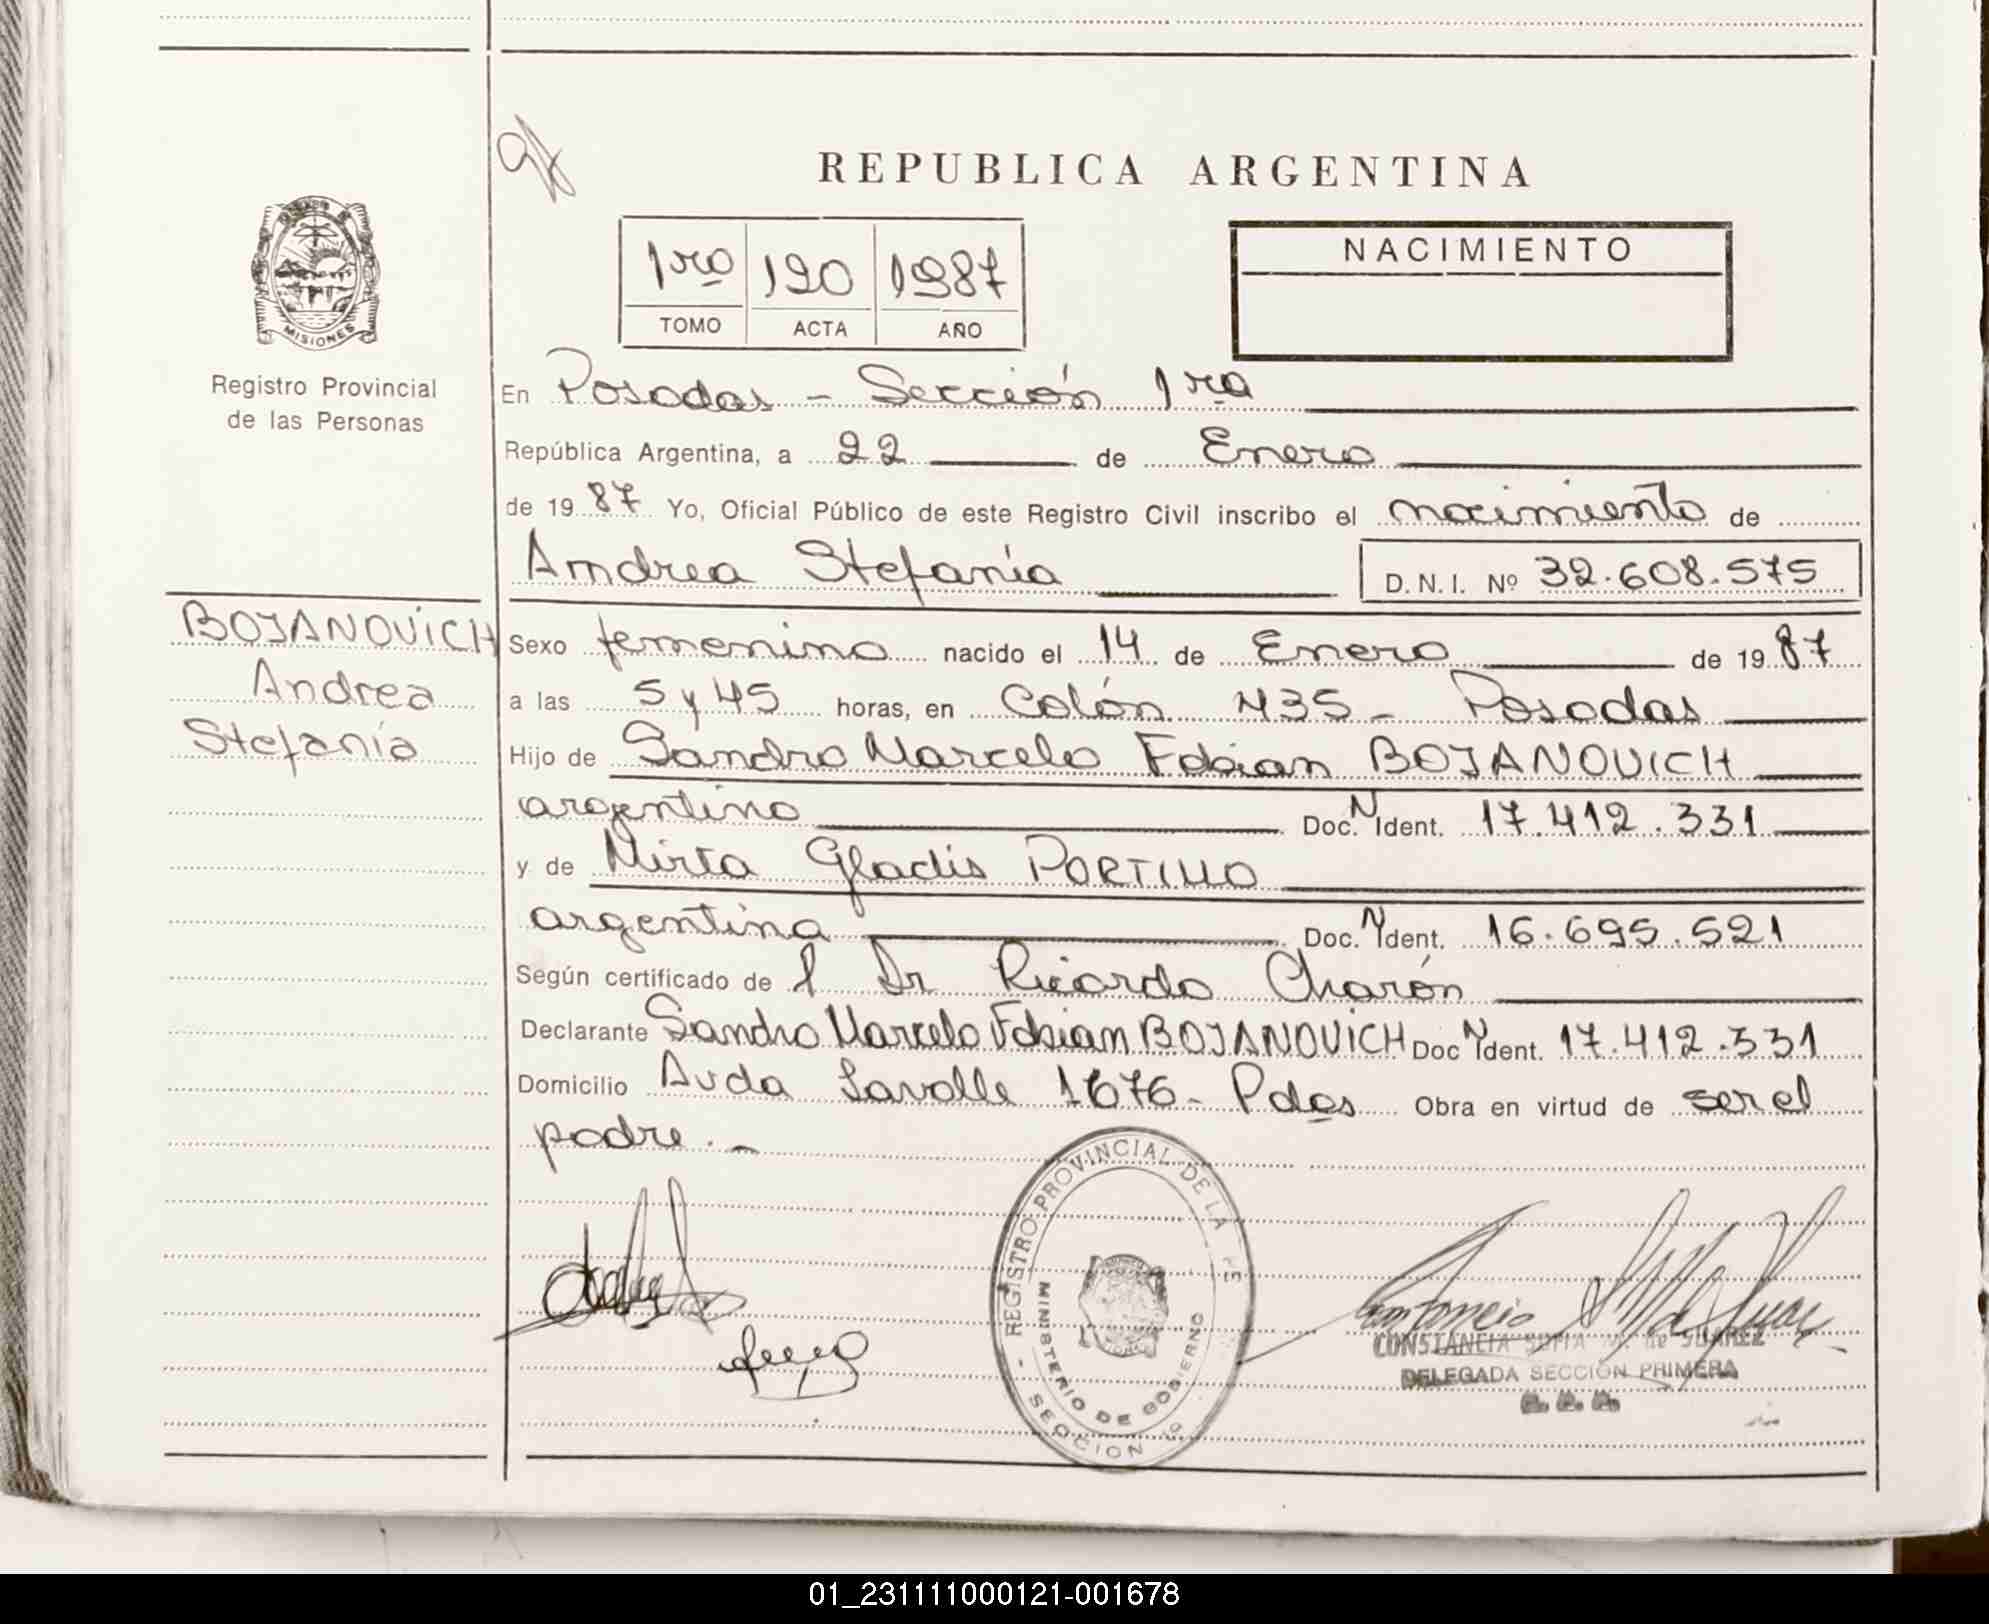 REPUBLICA ARGENTINA
1ro 190 1987
TOMO ACTA AÑO
NACIMIENTO
MISIONES
Registro Provincial
de las Personas
En Posadas - Sección 1ra
República Argentina, a 22 de Enero
de 1987 Yo, Oficial Público de este Registro Civil inscribo el nacimiento de
Andrea Stefanía D.N.I. Nº 32.608.575
BOJANOVICH
Andrea
Stefanía
Sexo femenino nacido el 14 de Enero de 1987
a las 5 y 45 horas, en Colón 435 - Posadas
Hijo de Sandro Marcelo Fabian BOJANOVICH
argentino Doc. N Ident. 17.412.331
y de Mirta Gladis PORTILLO
argentina Doc. N Ident. 16.695.521
Según certificado de l Dr Ricardo Charón
Declarante Sandro Marcelo Fabian BOJANOVICH Doc N Ident. 17.412.331
Domicilio Avda Lavalle 1676 - Pdas Obra en virtud de ser el
padre. -
- REGISTRO PROVINCIAL DE LA PE
MINISTERIO DE GOBIERNO
SECCION 1º
CONSTANCIA SOFIA M. de SUAREZ
DELEGADA SECCIÓN PRIMERA
01_231111000121-001678